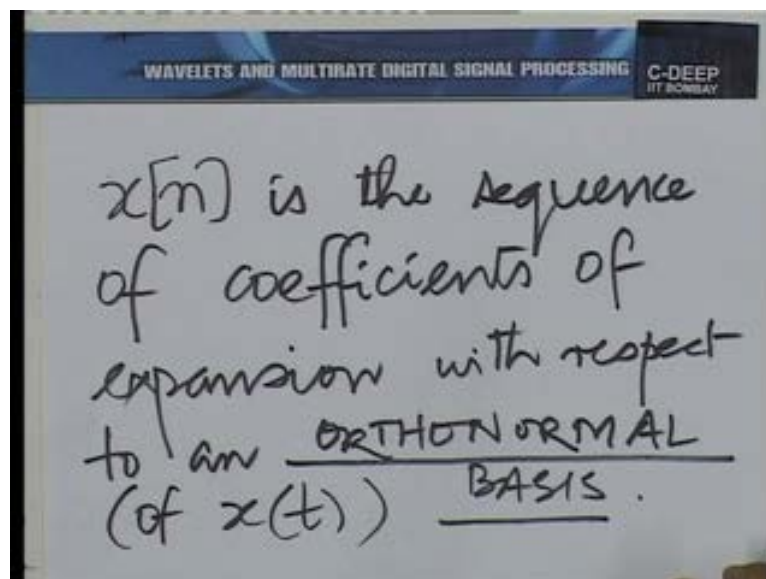 WAVELETS AND MULTIRATE DIGITAL SIGNAL PROCESSING
C-DEEP
IIT BOMBAY
x[n] is the sequence
of coefficients of
expansion with respect
to an ORTHONORMAL
(of x(t)) BASIS.